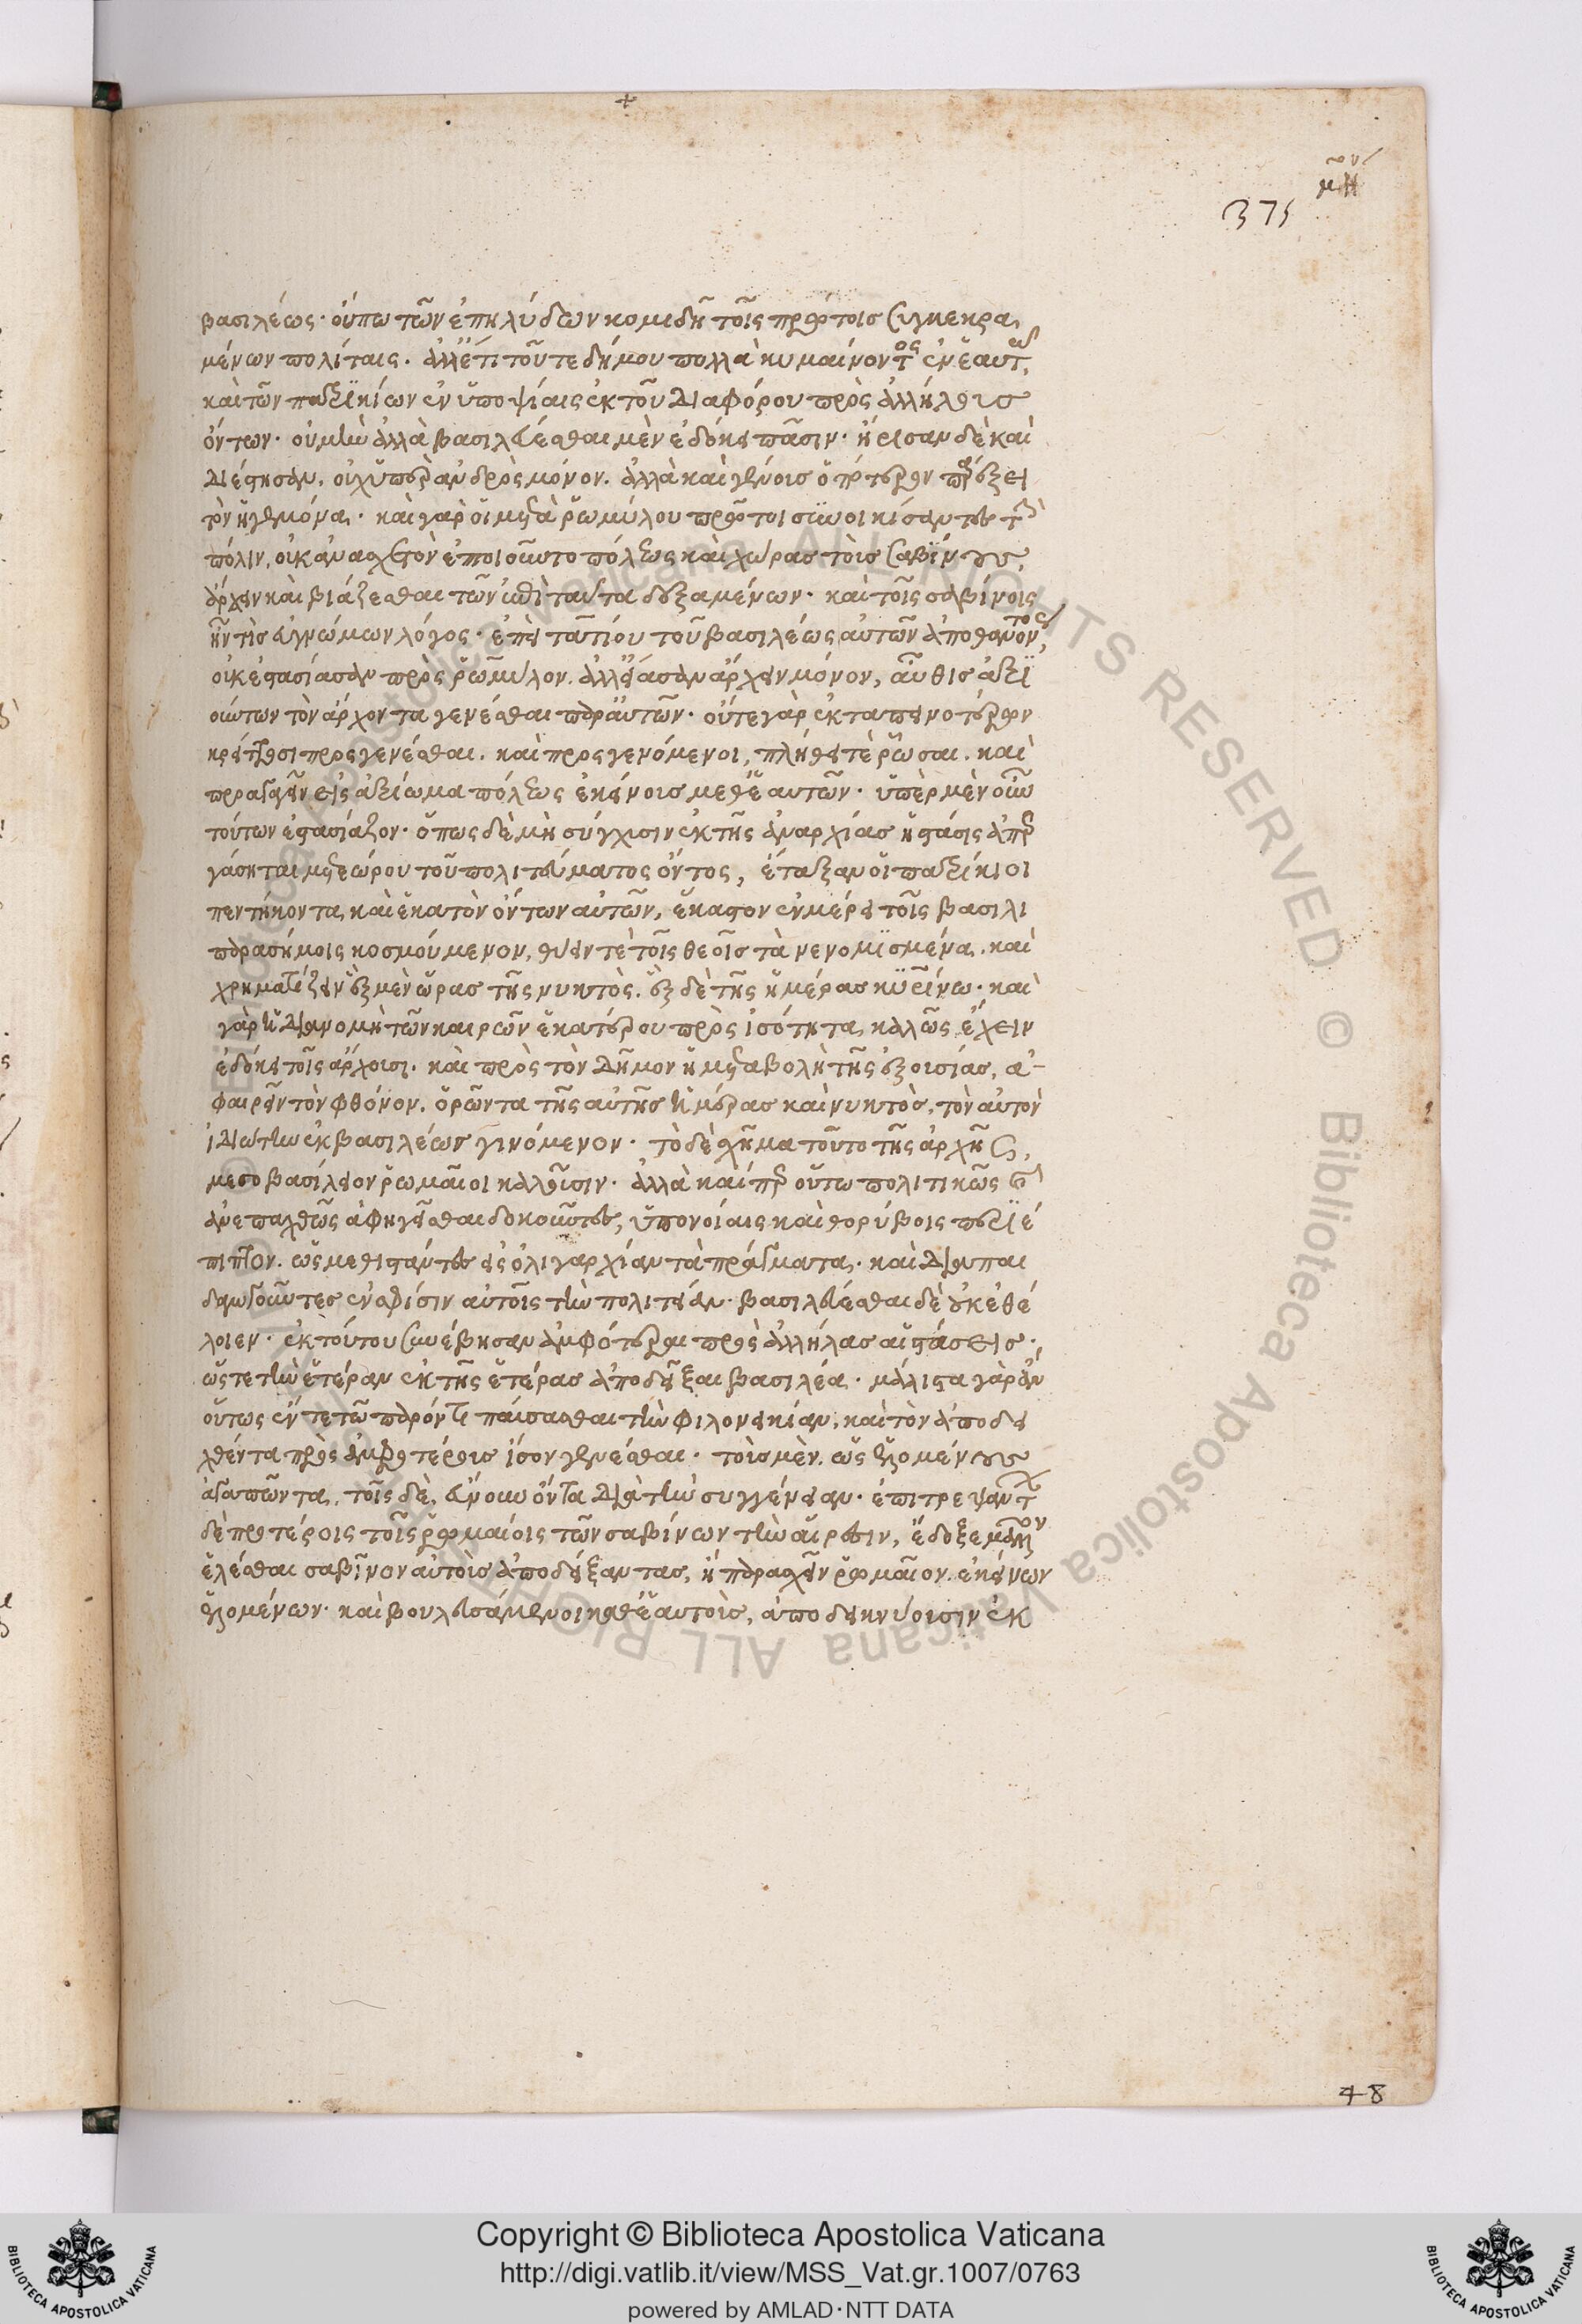 μῆν
375
βασιλέως· οὔπω τῶν ἐπηλύδων κομιδῆ τοῖς πρώτοις συγκεκρα
μένων πολίταις. ἀλλ' ἔτι τοῦ τε δήμου πολλὰ κυμαίνοντος ἐν ἑαυτῶ,
καὶ τῶν πατρικίων ἐν ὑποψίαις ἐκ τοῦ διαφόρου πρὸς ἀλλήλους
ὄντων· οὐ μὴν ἀλλὰ βασιλεύεσθαι μὲν ἐδόκει πᾶσιν· ἤριζαν δὲ καὶ
διέστησαν, οὐχ ὑπὲρ ἀνδρὸς μόνον. ἀλλὰ καὶ γένους ὁπότερον παρέξει
τὸν ἡγεμόνα. καὶ γὰρ οἱ μετὰ ῥωμύλου πρῶτοι συνοικίσαντες τὴν
πόλιν, οὐκ ἀνασχετὸν ἐποιοῦντο πόλεως καὶ χώρας τοὺς σαβίνους,
ἄρχειν καὶ βιάζεσθαι τῶν ἐπὶ ταῦτα δεξαμένων· καὶ τοῖς σαβίνοις
ἦν τις εὐγνώμων λόγος· ἐπεὶ τατίου τοῦ βασιλέως αὐτῶν ἀποθανόντος,
οὐκ ἐστασίασαν πρὸς ῥωμύλον. ἀλλ' εἴασαν ἄρχειν μόνον, αὖθις ἀξι
ούντων τὸν ἄρχοντα γενέσθαι παρ' αὐτῶν· οὔτε γὰρ ἐκ ταπεινοτέρων
κρείττοσι προσγενέσθαι. καὶ προσγενόμενοι, πλήθει τε ῥῶσαι. καὶ
προαγαγεῖν εἰς ἀξίωμα πόλεως ἐκείνους μεθ' ἑαυτῶν· ὑπὲρ μὲν οὖν
τούτων ἐστασίαζον· ὅπως δὲ μὴ σύγχισιν ἐκ τῆς ἀναρχίας ἡ στάσις ἀπερ
γάσηται μετεώρου τοῦ πολιτεύματος ὄντος, ἔταξαν οἱ πατρίκιοι
πεντήκοντα καὶ ἑκατὸν ὄντων αὐτῶν, ἕκαστον ἐν μέρει τοῖς βασιλι
παρασήμοις κοσμούμενον, θύειν τε τοῖς θεοῖς τὰ νενομισμένα. καὶ
χρηματίζειν ἓξ μὲν ὥρας τῆς νυκτὸς. ἓξ δὲ τῆς ἡμέρας κυρίνω· καὶ
γὰρ ἡ διανομὴ τῶν καιρῶν ἑκατέρου πρὸς ἰσότητα καλῶς ἔχειν
ἐδόκει τοῖς ἄρχουσι. καὶ πρὸς τὸν δῆμον ἡ μεταβολὴ τῆς ἐξουσίας, ἀ-
φαιρεῖν τὸν φθόνον. ὁρῶντα τῆς αὐτῆς ἡμέρας καὶ νυκτὸς, τὸν αὐτὸν
ἰδιώτην ἐκ βασιλέως γινόμενον· τὸ δὲ σχῆμα τοῦτο τῆς ἀρχῆς,
μεσοβασίλειον ῥωμαῖοι καλοῦσιν· ἀλλὰ καίπερ οὕτω πολιτικῶς καὶ
ἀνεπαχθῶς ἀφηγεῖσθαι δοκοῦντες, ὑπονοίαις καὶ θορύβοις περιέ
πιπτον. ὡς μεθιστάντες εἰς ὀλιγαρχίαν τὰ πράγματα. καὶ διαπαι
δαγωγοῦντες ἐν σφίσιν αὐτοῖς τὴν πολιτείαν· βασιλεύεσθαι δὲ οὐκ ἐθέ
λοιεν· ἐκ τούτου συνέβησαν ἀμφότεραι πρὸς ἀλλήλας αἱ στάσεις·
ὥστε τὴν ἑτέραν ἐκ τῆς ἑτέρας ἀποδεῖξαι βασιλέα. μάλιστα γὰρ ἂν
οὕτως ἔν τε τῶ παρόντι παύσασθαι τὴν φιλονεικίαν, καὶ τὸν ἀποδει
χθέντα πρὸς ἀμφοτέρους ἴσον γενέσθαι· τοὺς μὲν, ὡς ἑλομένους
ἀγαπῶντα, τοῖς δὲ, εὔνουν ὄντα διὰ τὴν συγγένειαν. ἐπιτρεψάντων
δὲ προτέροις τοῖς ῥωμαίοις τῶν σαβίνων τὴν αἵρεσιν, ἔδοξε μᾶλλον
ἑλέσθαι σαβῖνον αὐτοὺς ἀποδείξαντας, ἢ παρασχεῖν ῥωμαῖον, ἐκείνων
ἑλομένων· καὶ βουλευσάμενοι καθ' ἑαυτοὺς, ἀποδεικνύουσιν ἐκ
48
Copyright © Biblioteca Apostolica Vaticana
http://digi.vatlib.it/view/MSS_Vat.gr.1007/0763
powered by AMLAD·NTT DATA